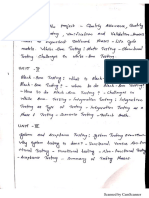 the Project - Quality Assurance, Quality
Testing, Verification and Validation, Process
to Represent Different Phases - Life Cycle
models. White-Box Testing: Static Testing - Structural
Testing Challenges to White-Box Testing.
UNIT - II
Black-Box Testing: What is Black-Box
Testing? - Why Black-Box Testing? - When to
do Black-Box Testing? - How to do Black-Box
Testing? - Challenges
Box Testing - Integration Testing: Integration
Testing as Type of Testing - Integration Testing as a
Phase of Testing - Scenario Testing - Defect
Bash.
UNIT - III
System and Acceptance Testing: System Testing Overview -
Why System testing is done? - Functional Versus Non-
functional Testing - Functional testing - Non-functional Testing
- Acceptance Testing - Summary of Testing Phases
Scanned by CamScanner